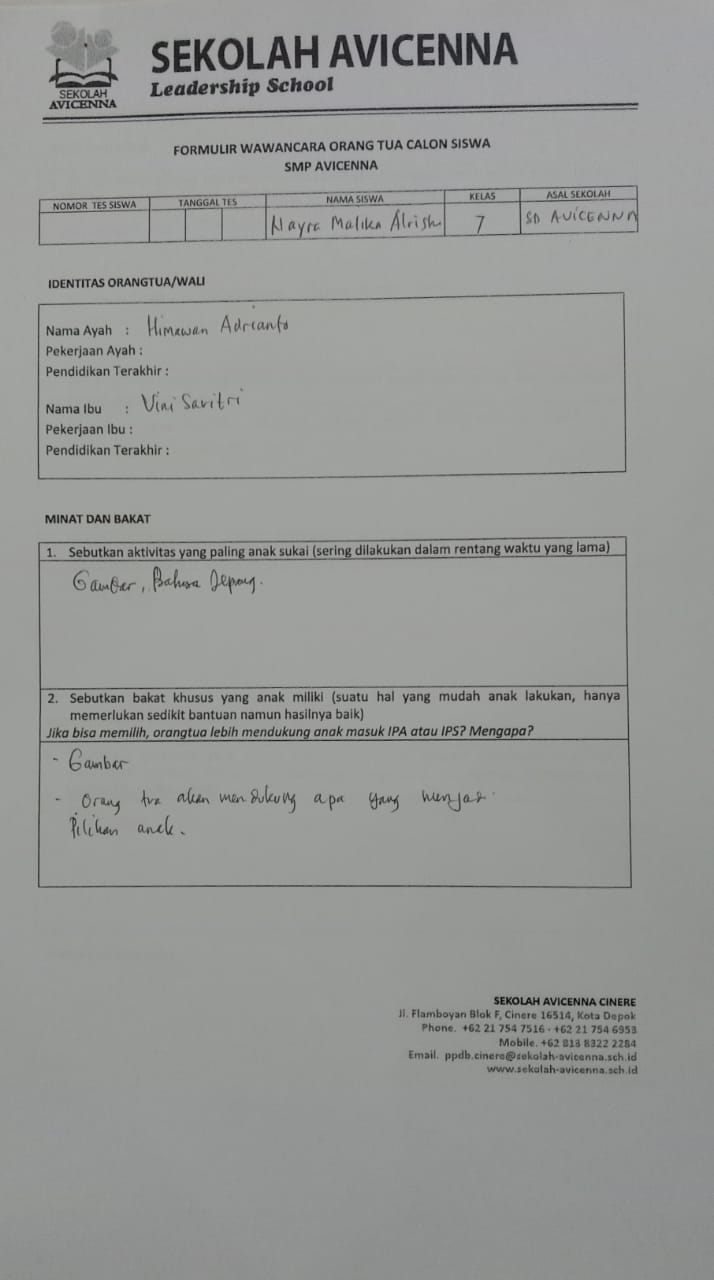 SEKOLAH AVICENNA
Leadership School
SEKOLAH
AVICENNA
FORMULIR WAWANCARA ORANG TUA CALON SISWA
SMP AVICENNA
NOMOR TES SISWA TANGGAL TES NAMA SISWA KELAS ASAL SEKOLAH
Nayra Malika Alrish 7 SD AVICENNA
IDENTITAS ORANGTUA/WALI
Nama Ayah : Himawan Adrianto
Pekerjaan Ayah :
Pendidikan Terakhir :
Nama Ibu : Vini Savitri
Pekerjaan Ibu :
Pendidikan Terakhir :
MINAT DAN BAKAT
1. Sebutkan aktivitas yang paling anak sukai (sering dilakukan dalam rentang waktu yang lama)
Gambar, Bahasa Jepang.
2. Sebutkan bakat khusus yang anak miliki (suatu hal yang mudah anak lakukan, hanya
memerlukan sedikit bantuan namun hasilnya baik)
Jika bisa memilih, orangtua lebih mendukung anak masuk IPA atau IPS? Mengapa?
- Gambar
- Orang tua akan mendukung apa yang
Pilihan anak.
SEKOLAH AVICENNA CINERE
Jl. Flamboyan Blok F, Cinere 16514, Kota Depok
Phone. +62 21 754 7516 - +62 21 754 6953
Mobile. +62 818 8322 2284
Email. ppdb.cinere@sekolah-avicenna.sch.id
www.sekolah-avicenna.sch.id